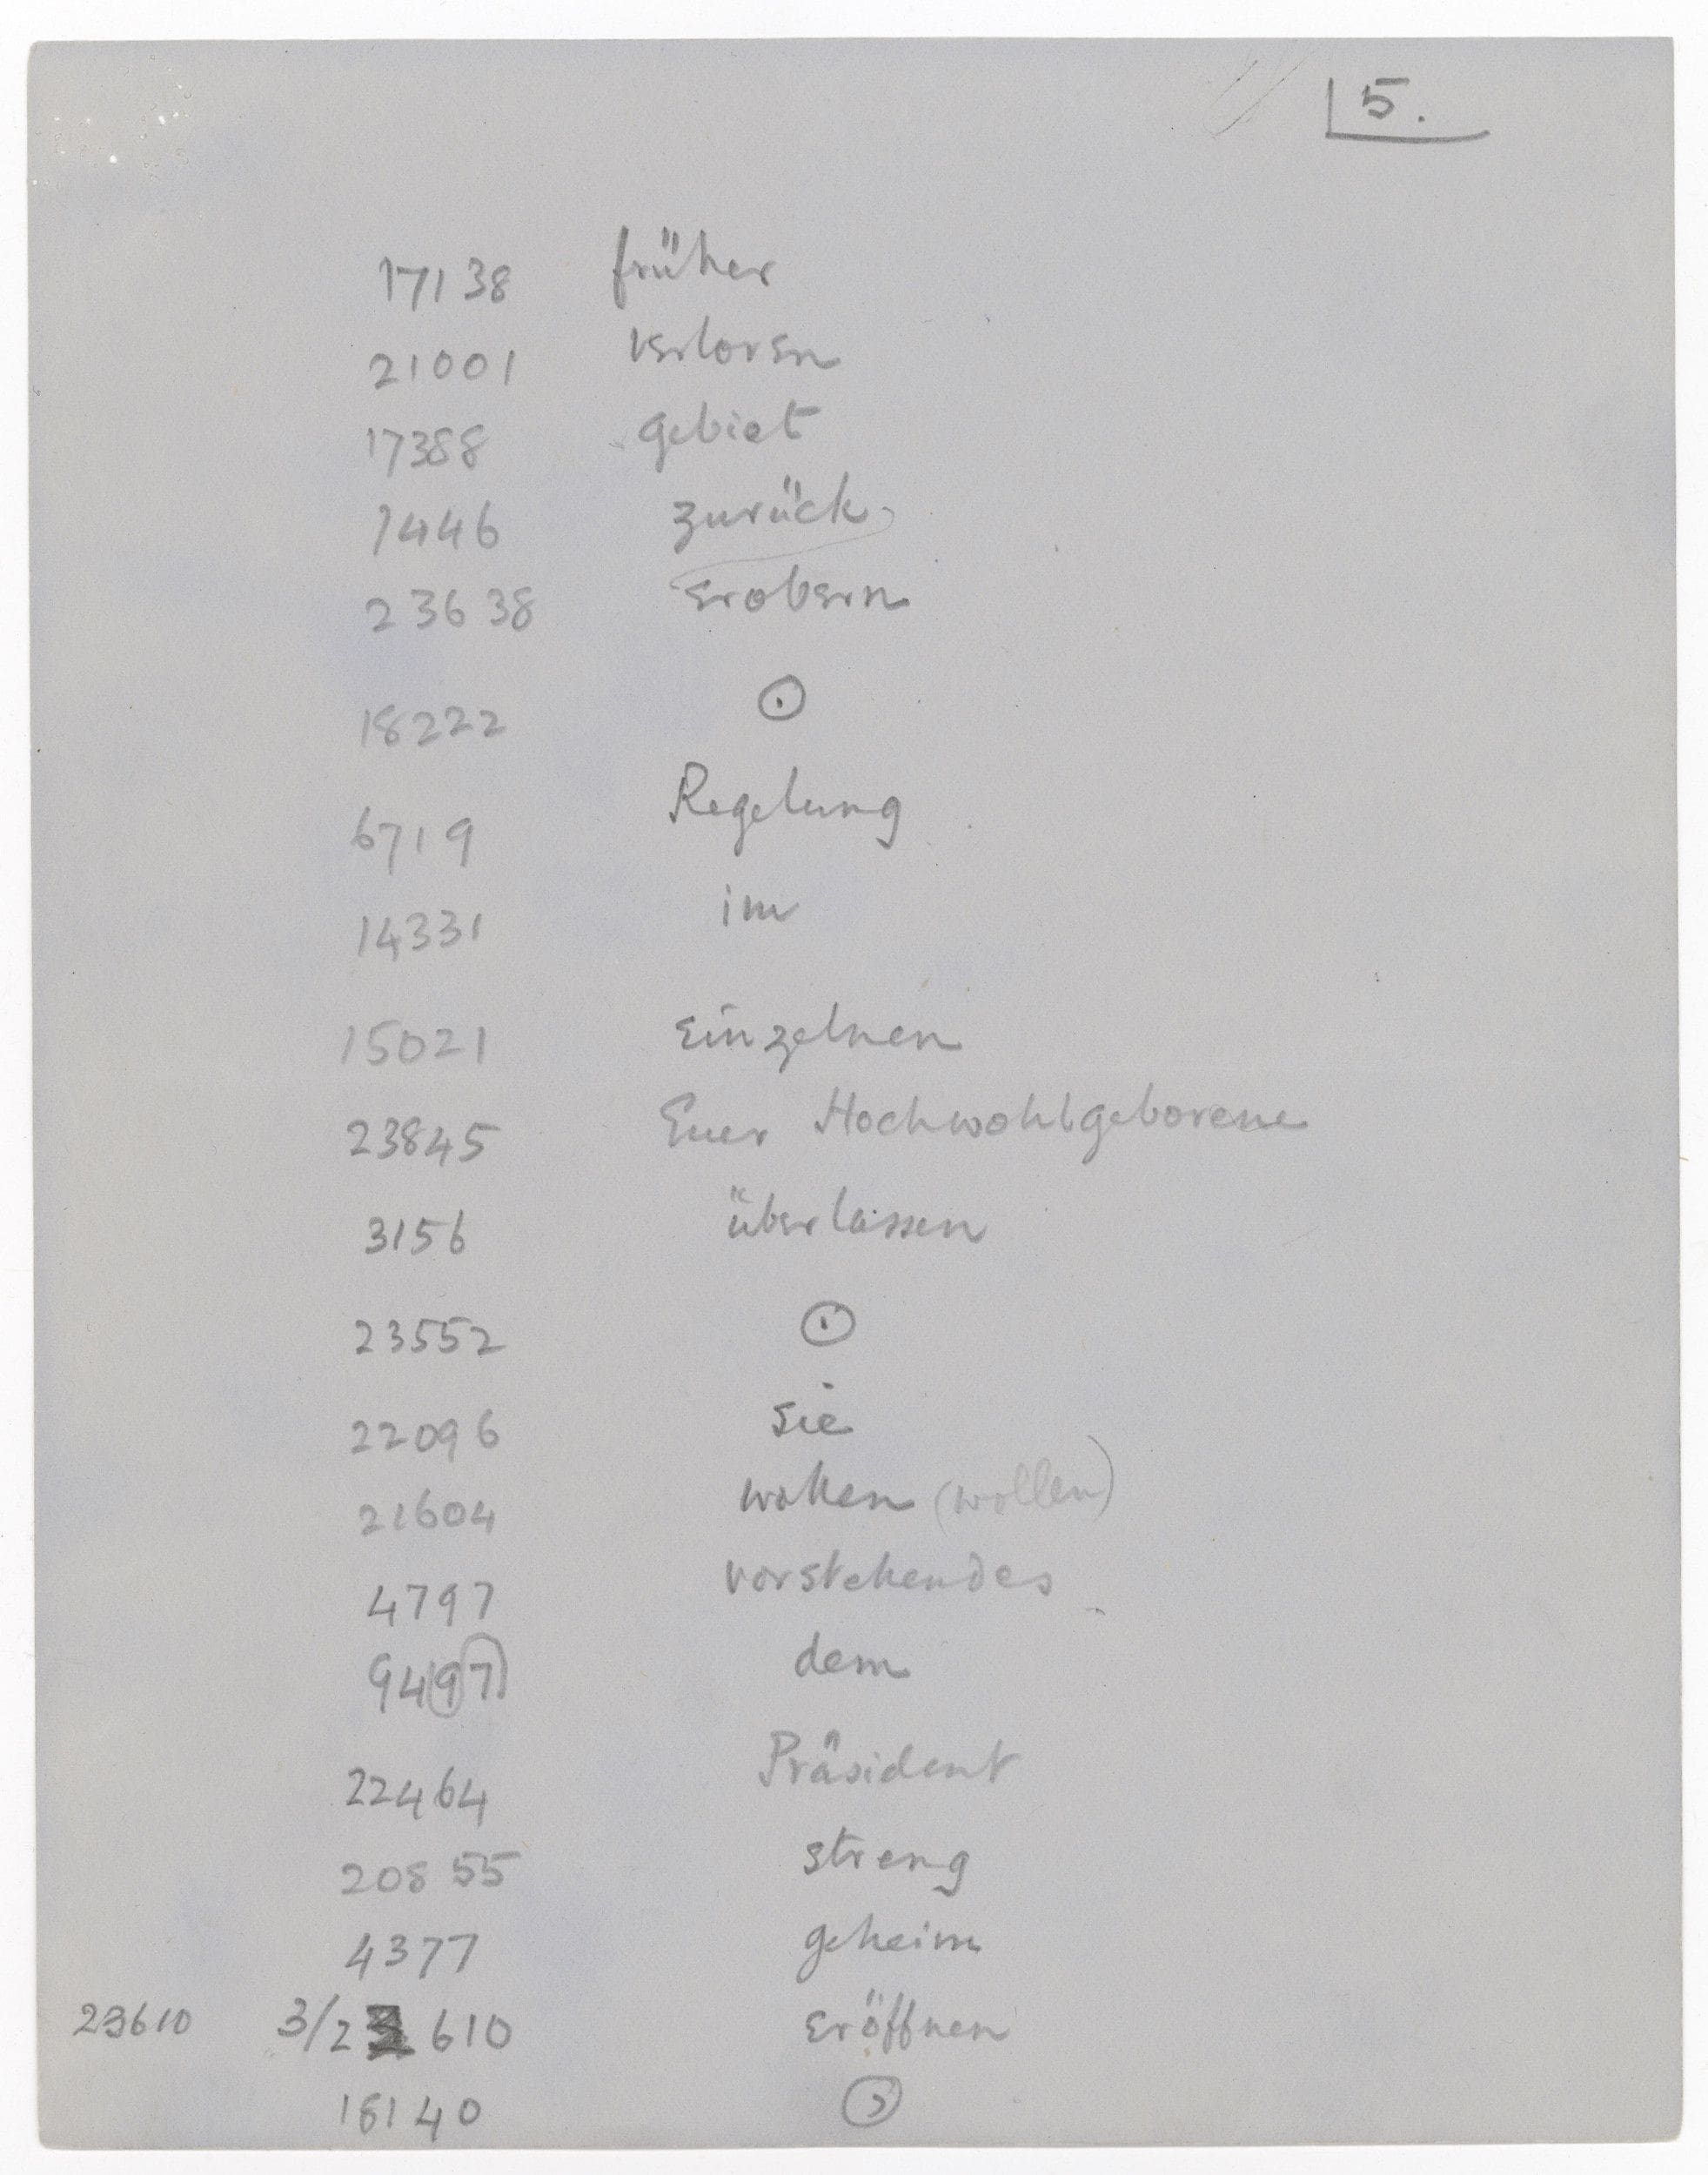 5.
17138 früher
21001 verloren
17388 gebiet
7446 zurück
23638 erobern
18222 ⊙
6719 Regelung
14331 im
15021 einzelnen
23845 Euer Hochwohlgeborene
3156 überlassen
23552 ⊙
22096 sie
21604 wollen (wollen)
4797 vorstehendes
9497 dem
22464 Präsident
20855 streng
4377 geheim
23610 3/2 610 eröffnen
18140 ,